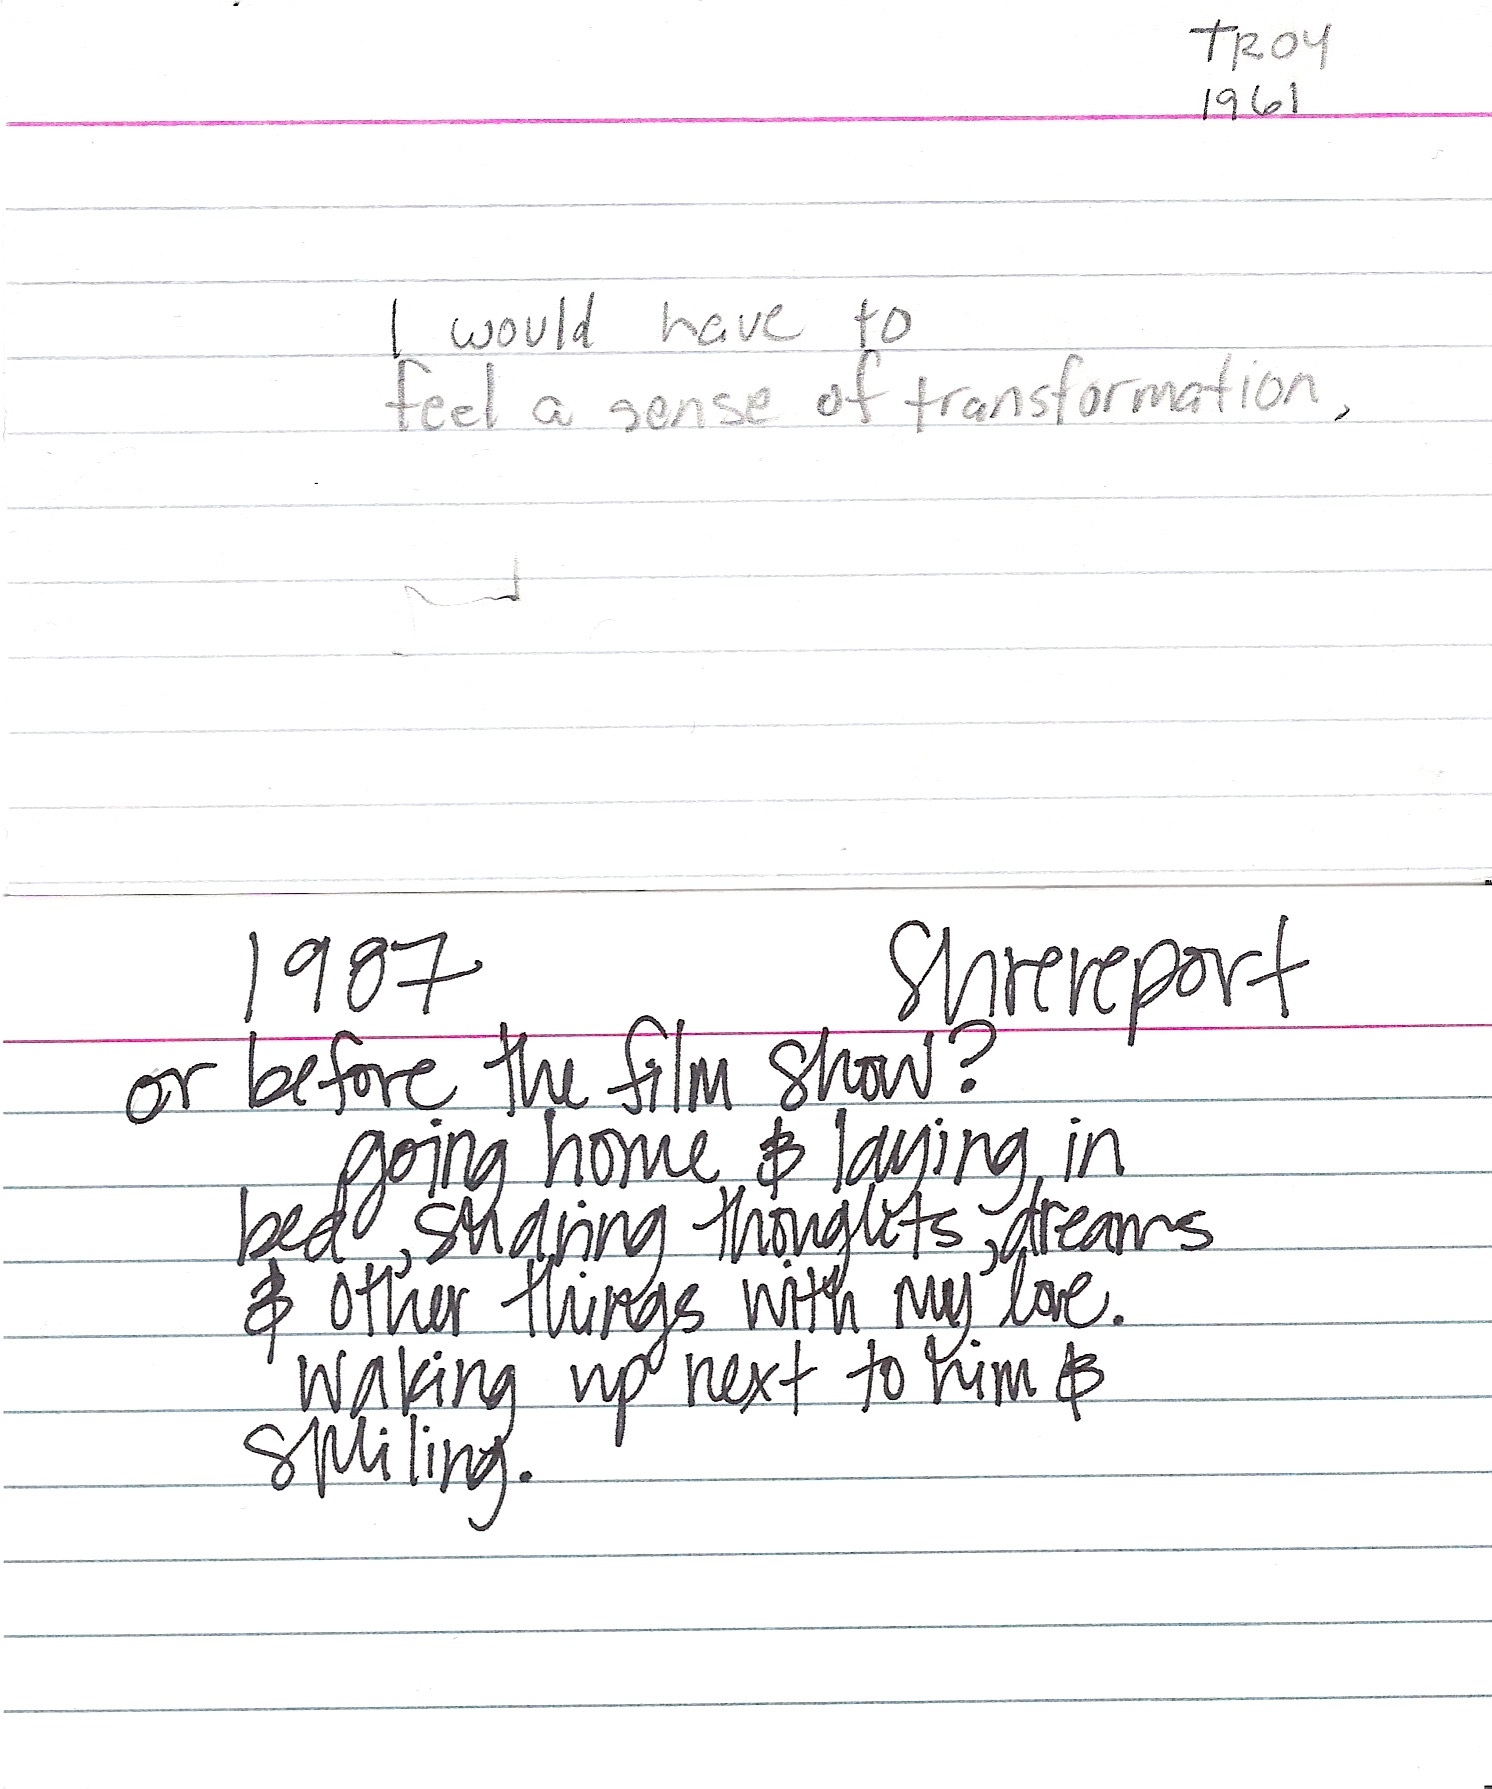 TROY
1961
I would have to
feel a sense of transformation,
1987 Shrereport
or before the film show?
going home & laying in
bed, sharing thoughts, dreams
& other things with my love.
waking up next to him &
smiling.